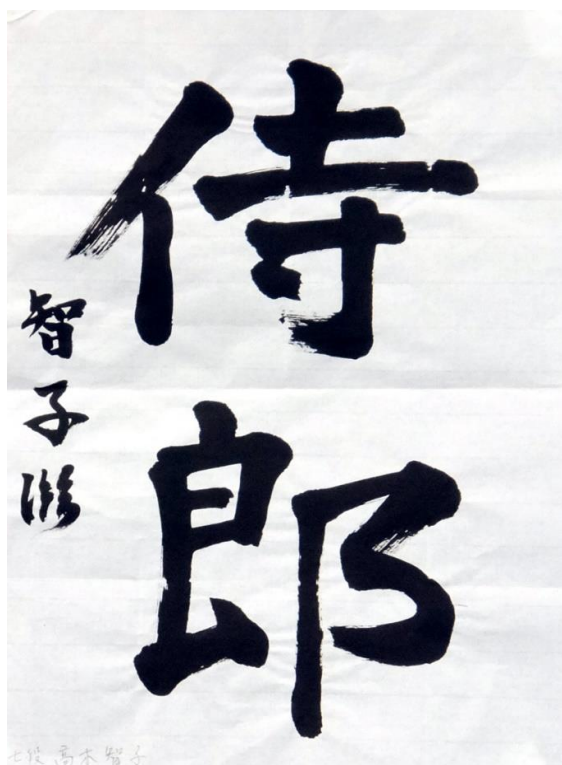 侍郎
智子臨
七段 高木智子